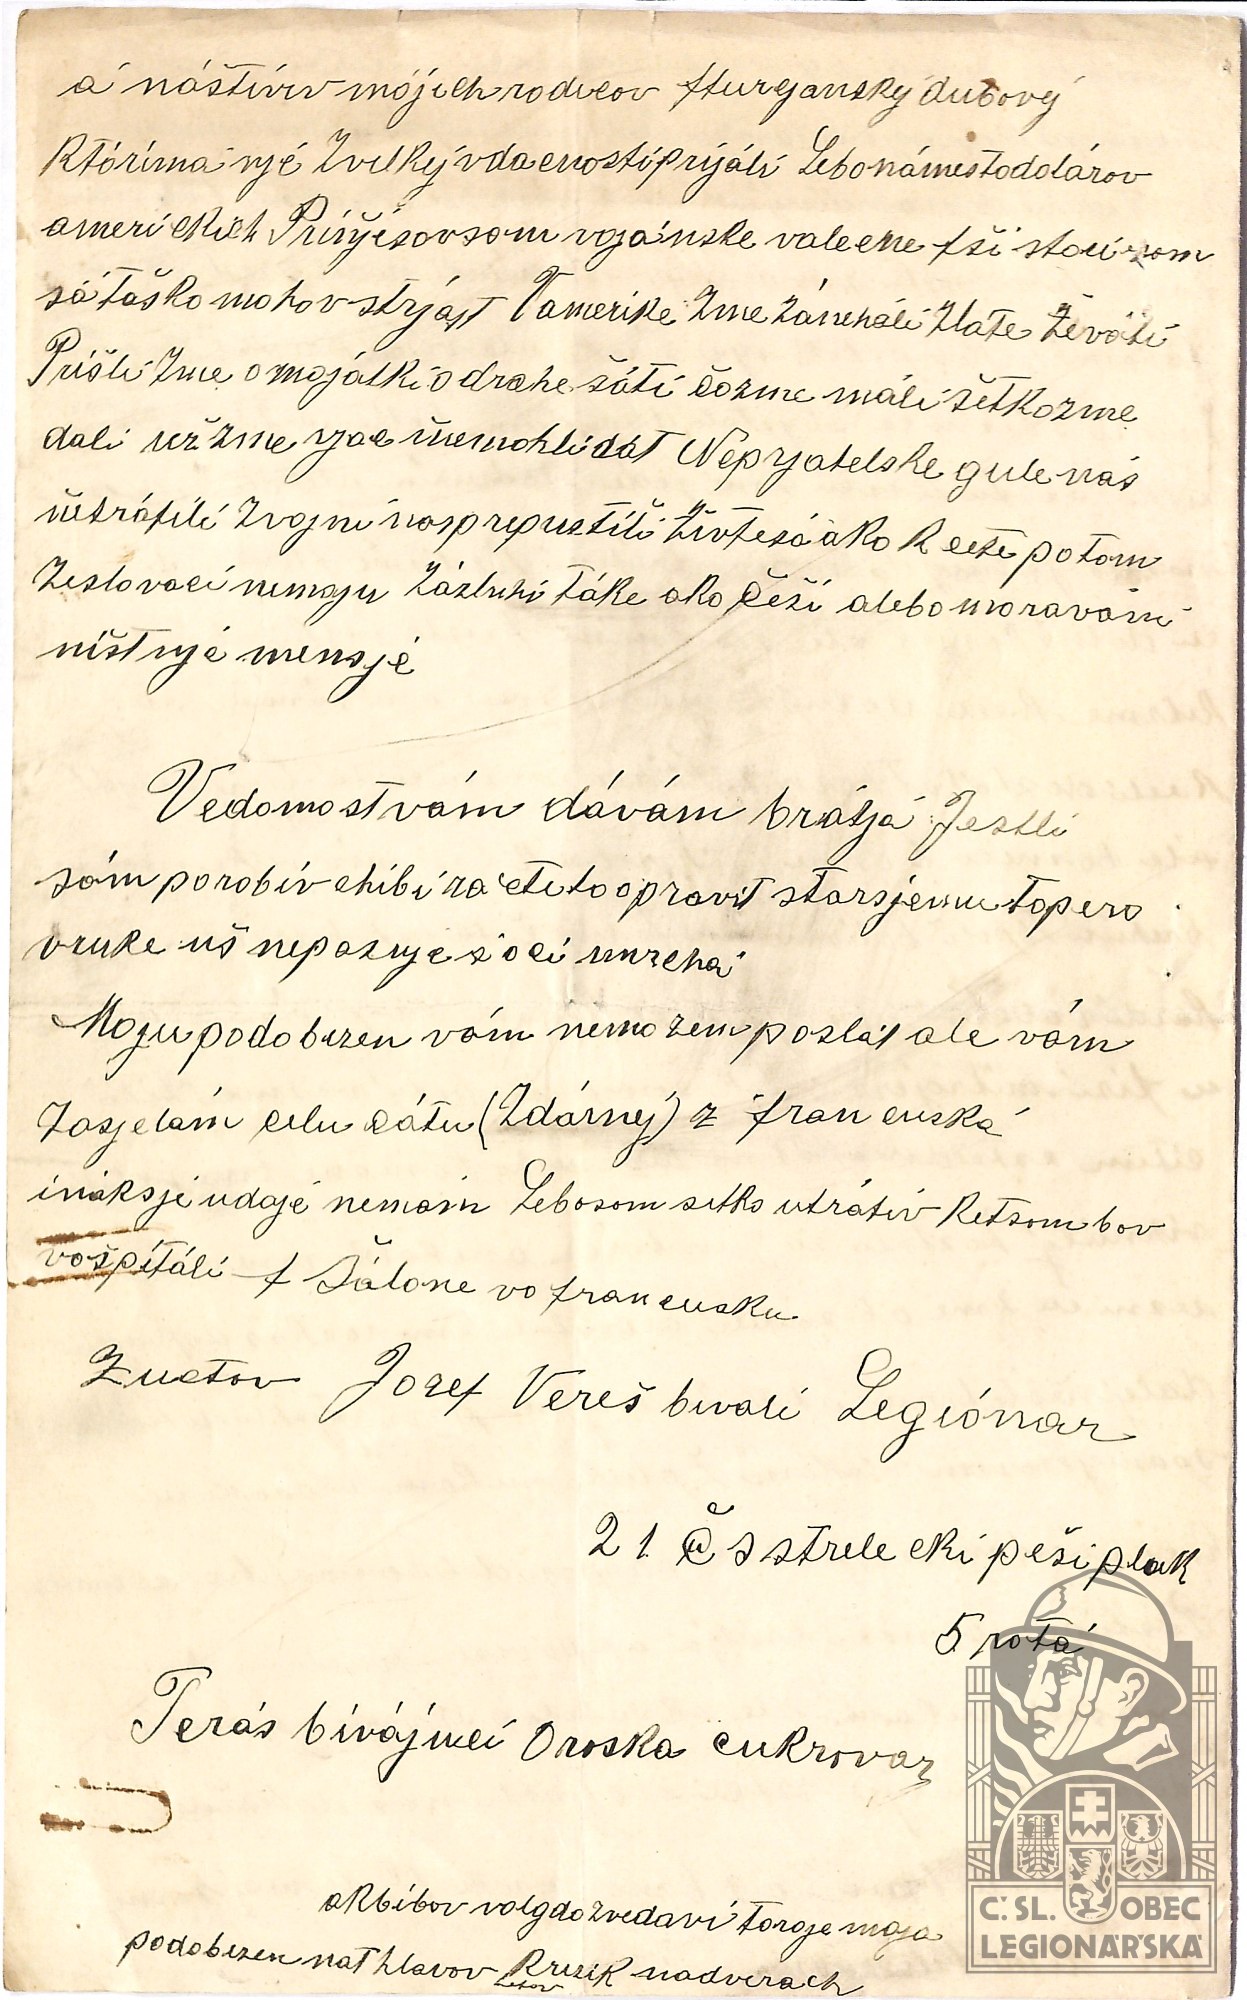 a náštiviv mójich rodičov fturčanskÿ dubovÿ
Któríma njé Zvelkéj vdačnosti prijáli Lebo námesto dolárov
američkich Prinjésov som vojanske valečne fši stoci som
sá taško mohov strjást Vamerike Zme zánchali zlate Ževáti
Prišli Zme o majátki o drahe šáti čozme máli šetkozme
dali uz zme vjac ňemohli dát Neprjatelske gule nás
ňetráfili Zvojni nas prepustili Živte sá ako Kcete potom
Zeslovaci nemaju Zázluhi táke ako Češi alebo moraváni
ništ njé menšjé
Vedomost vám dávám brátjá Jestli
sóm porobiv chibi ráčte to opravit starsjemu to pero
vruke uš nepasuje s oči umrchá
Moju podobizen vám nemožem poslat ale vám
Zasjelám celu čátu (Zdárnej) z francuska
inakšjé udajé nemám Lebo som setko utrátiv Ket som bov
vošpitáli f Šálone vo francusku
Zuctov Jozef Vereš bivali Legiónar
21 Čs strelecki peši pluk
5 rotá
Terás bivájuci Oroska cukrovar
akbi bov volgdo zvedavi toroje moja
podobizen nat hlavov Krizik na dverach
Č.SL. OBEC
LEGIONÁŘSKÁ